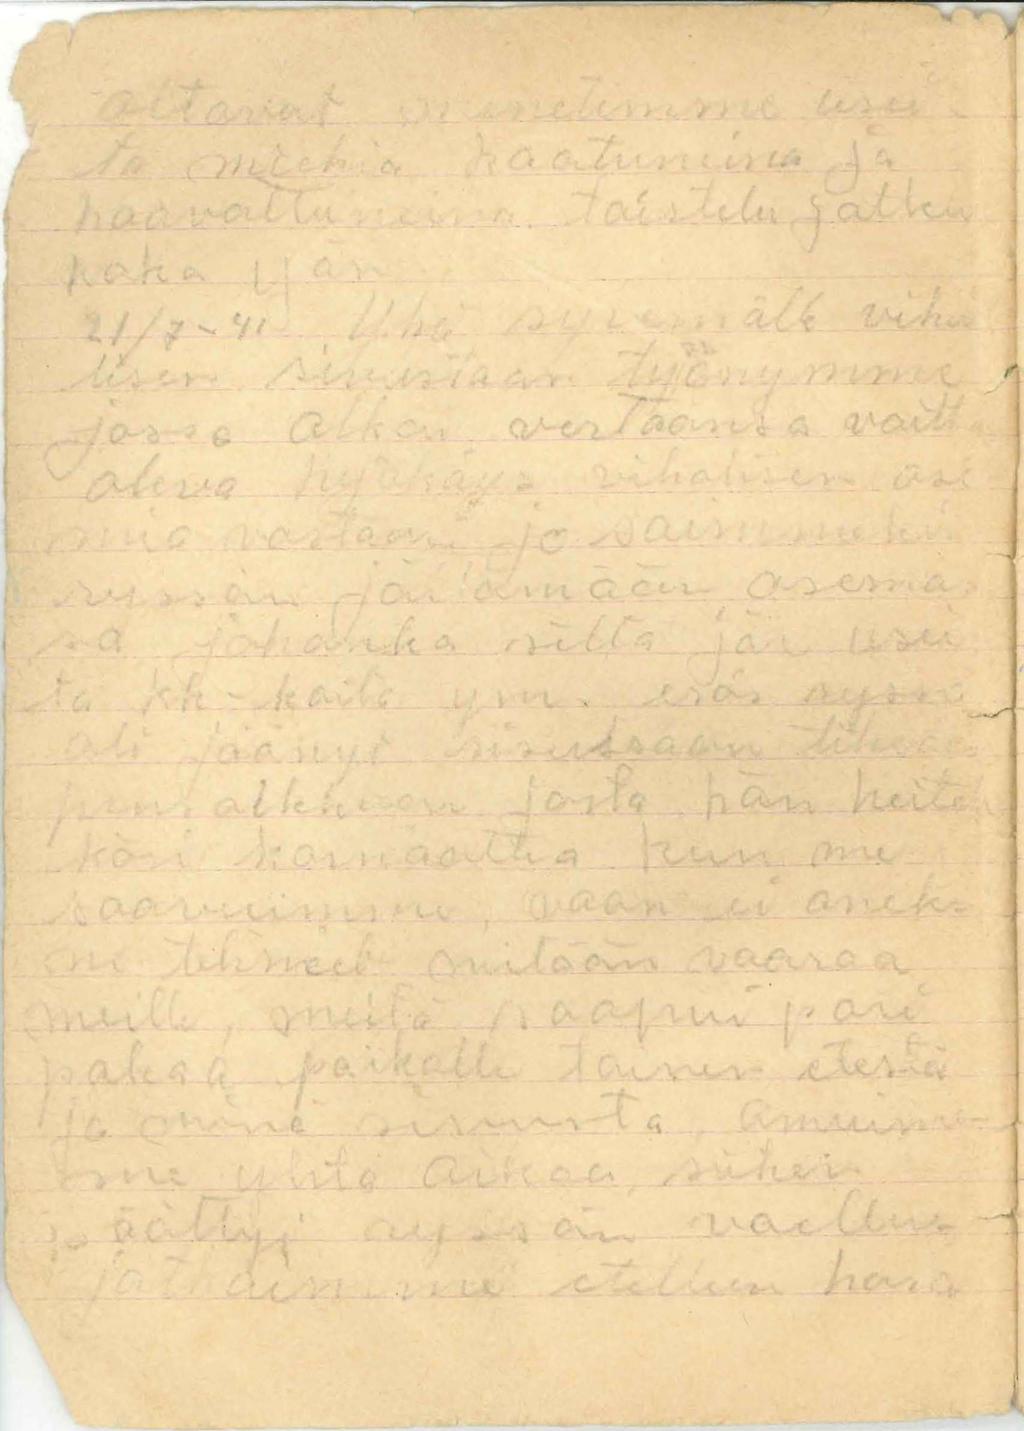 oltavat menetimme usei-
ta miehiä kaatuneina ja
haavoittuneina taistelu jatkui
koko yön
21/7-41 Yhä syvemälle viho
lisen sivustaan työnymme
jossa alkoi vertaansa vailla
oleva hyökäys vihollisen ase
mia vastaan, jo saimmeki
ryssän jättämään asema-
sa johonka siltä jäi usei
ta kk-koita ym. eräs ryssä
oli jäänyt sivustaan tiheään
pensaikkoon josta hän heite
käsikarnaattia kun me
saavuimme, vaan ei anek-
ne tehneet mitään vaaraa
meille, meitä saapui pari
pakaa paikalle toinen etestä
ja minä sivusta, amuim-
me yhtä aikaa, siihen
päättyi ryssän vaellus
jatkoimme etelleen hara